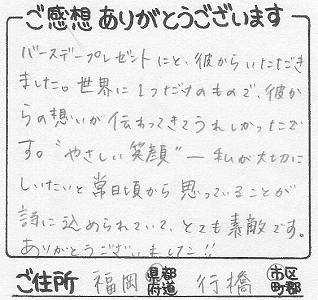 ご感想ありがとうございます
バースデープレゼントにと、彼からいただき
ました。世界に1つだけのもので、彼か
らの想いが伝わってきてうれしかったで
す。"やさしい笑顔"―私が大切に
したいと常日頃から思っていることが
詩に込められていて、とても素敵です。
ありがとうございました!!
ご住所 福岡 県都府道 行橋 市区町郡